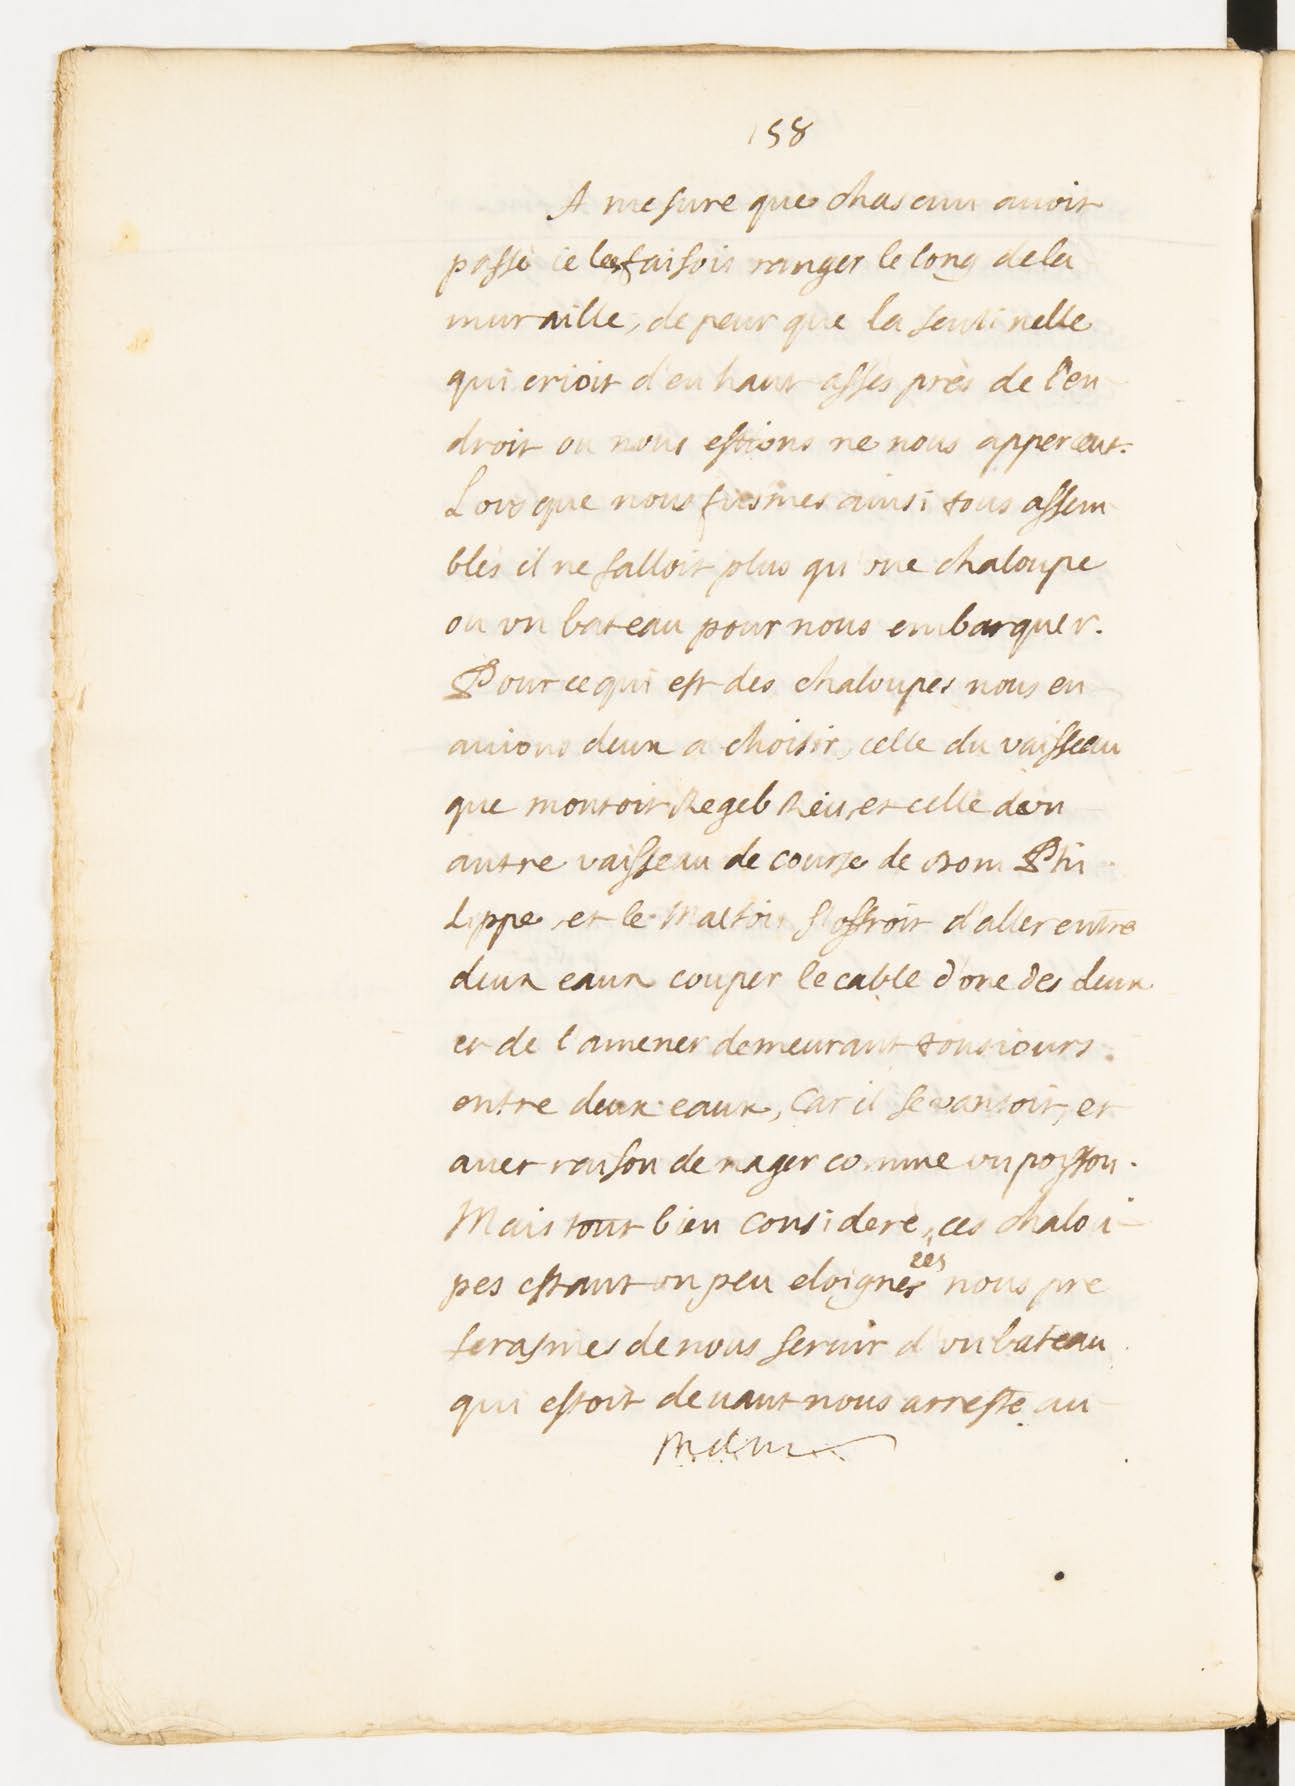 158
A mesure que chascun auoit
passé ie les faisois ranger le long de la
muraille, de peur que la sentinelle
qui crioit d'en haut assés près de l'en
droit ou nous estions ne nous apperceut.
Lors que nous fusmes ainsi tous assem
blés il ne falloit plus qu'vne chaloupe
ou vn bateau pour nous embarquer.
Pour ce qui est des chaloupes nous en
auions deux a choisir, celle du vaisseau
que montoit Regeb Reis, et celle d'vn
autre vaisseau de course de Dom Phi
lippe, et le Maltois s'offroit d'aller entre
deux eaux couper le cable d'vne des deux
et de l'amener demeurant tousiours
entre deux eaux, car il se vantoit, et
auec raison de nager comme vn poisson.
Mais tout bien consideré, ces chalou
pes estant vn peu eloignées nous pre
ferasmes de nous seruir d'vn bateau
qui estoit deuant nous arresté au